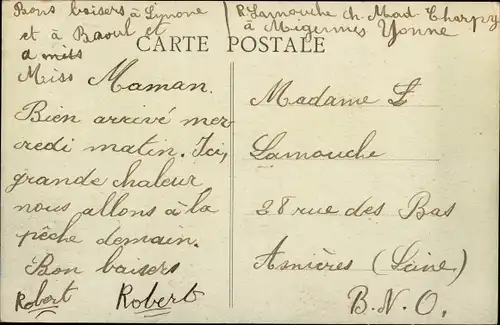 Bons baisers à Simone
et à Raoul et
amits
R. Lamouche ch. Mad. Charpy
à Migennes Yonne
CARTE POSTALE
Miss Maman.
Bien arrivé mer
credi matin. Ici,
grande chaleur
nous allons à la
pêche demain.
Bon baisers
Robert Robert
Madame L
Lamouche
28 rue des Bas
Asnières (Seine)
B.N.O.